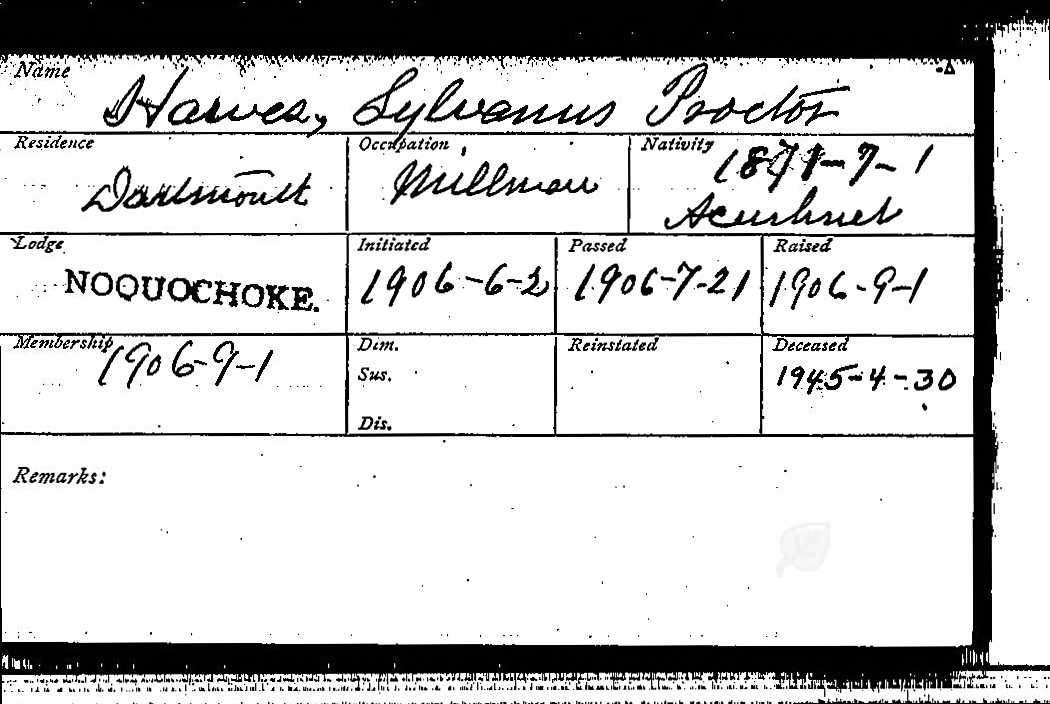 Name
Hawes, Sylvanus Proctor
Residence
Dartmouth
Occupation
Millman
Nativity
1871-7-1
Acushnet
Lodge
NOQUOCHOKE.
Initiated
1906-6-2
Passed
1906-7-21
Raised
1906-9-1
Membership
1906-9-1
Dim.
Sus.
Dis.
Reinstated
Deceased
1945-4-30
Remarks: